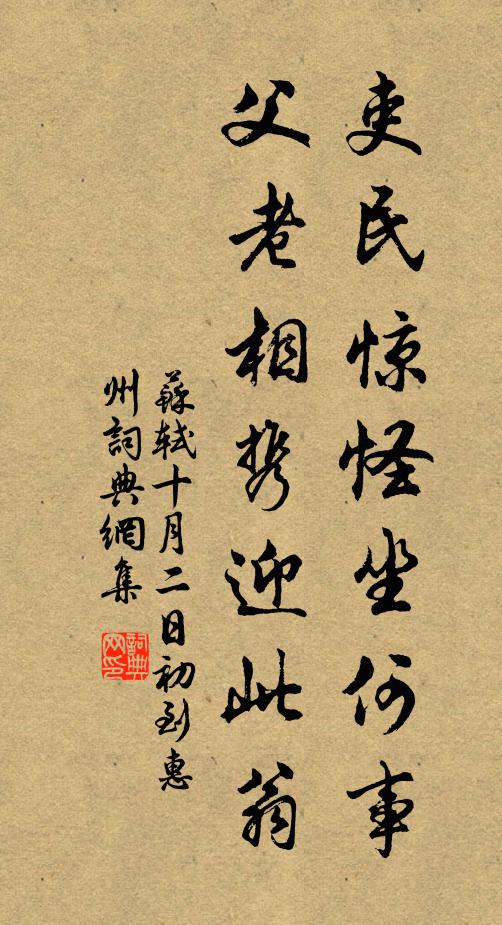 吏民惊怪坐何事
父老相携迎此翁
蘇軾十月二日初到惠
州詞典網集
詞典
网印